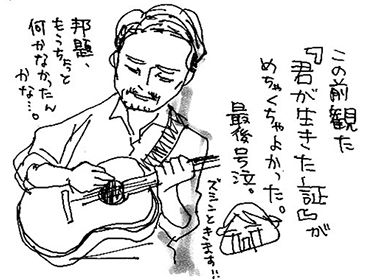 この前観た
『君が生きた証』が
めちゃくちゃよかった。
最後号泣。
ズシンときます!!
邦題、
もうちょっと
何かなかったん
かな…。